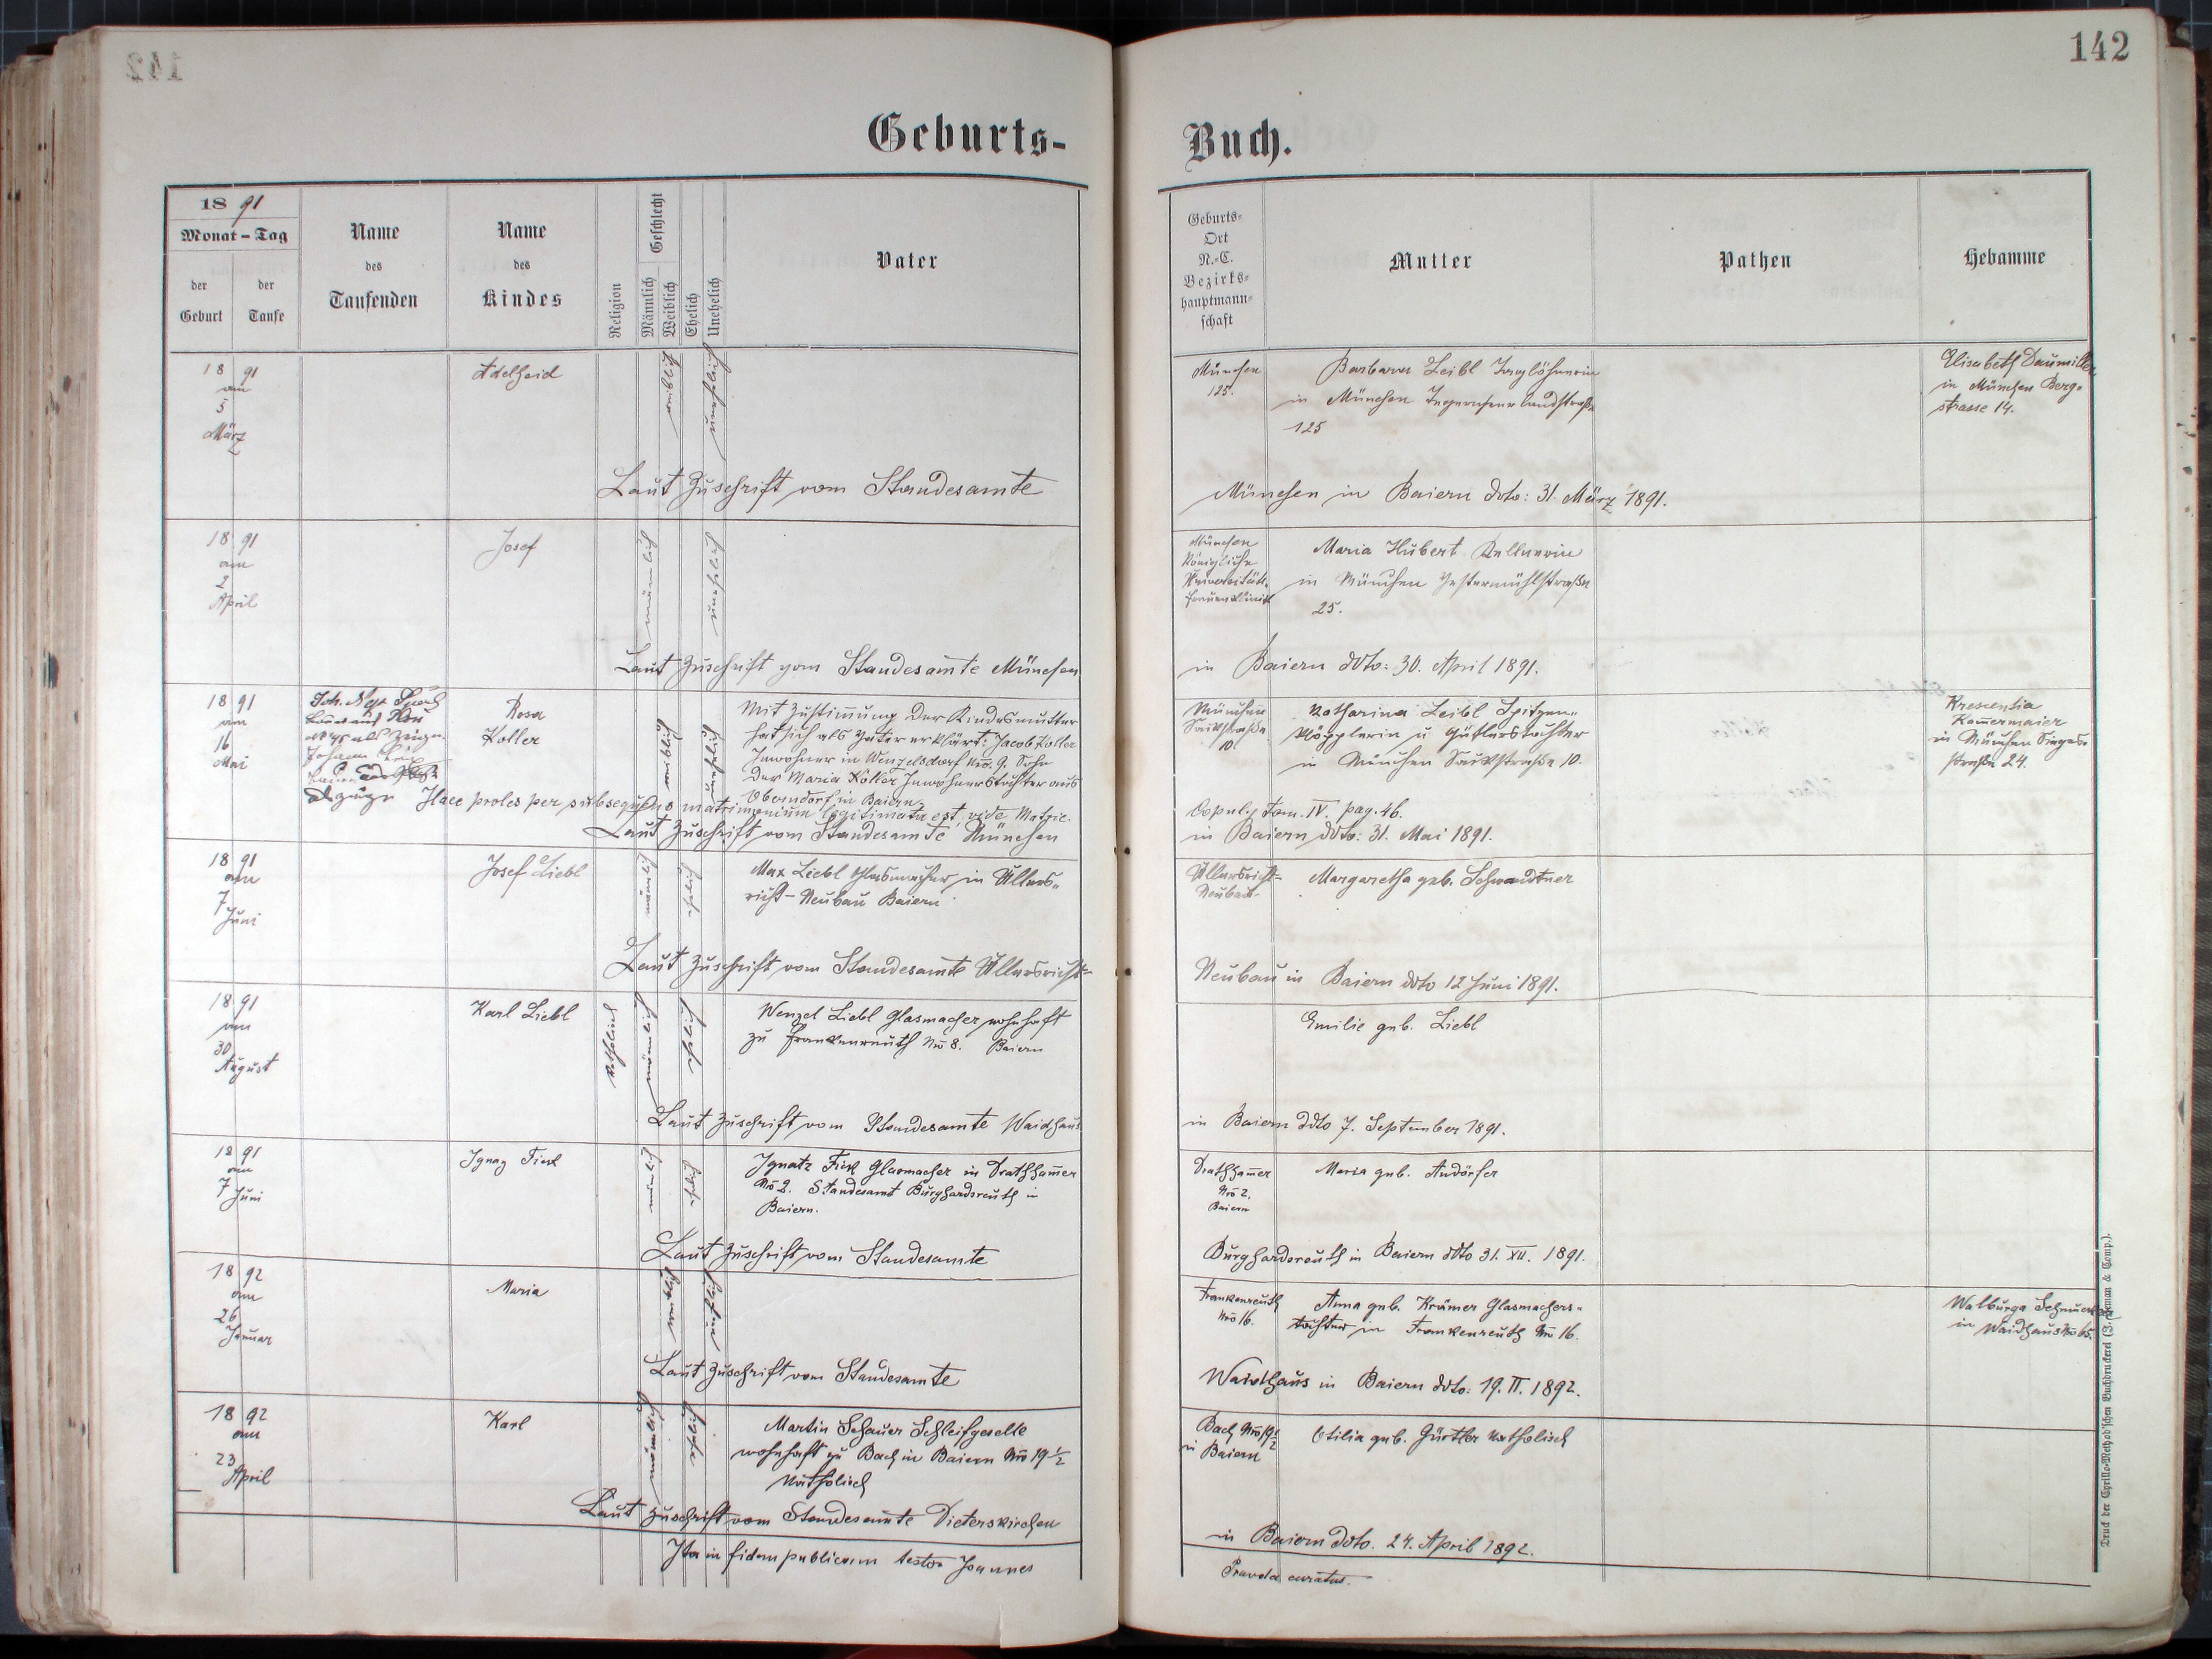 142
142
Geburts-
Buch.
18 91
Monat - Tag
der
Geburt
der
Taufe
Name
des
Taufenden
Name
des
Kindes
Religion
Geschlecht
Männlich
Weiblich
Ehelich
Unehelich
Vater
Geburts-
Ort
N.-C.
Bezirks-
hauptmann-
schaft
Mutter
Pathen
Hebamme
18 91
am
5
März
Adelheid
weiblich
unehelich
Laut Zuschrift vom Standesamte
München
125.
Barbara Leibl Taglöhnerin
in München Tegernseerlandstraße
125
Elisabeth Daumiller
in München Berg-
strasse 14.
München in Baiern ddto: 31. März 1891.
18 91
am
2
April
Josef
männlich
unehelich
Laut Zuschrift vom Standesamte München
München
Königliche
Universitäts-
Frauenklinik
Maria Hubert Kellnerin
in München
25.
in Baiern ddto: 30. April 1891.
18 91
am
16
Mai
Joh. Nep.
als Zeuge
Johann
als Zeuge
Rosa
Koller
weiblich
unehelich
Mit Zustimmung der Kindesmutter
hat sich als Vater erklärt: Jacob Koller
Inwohner in Wenzelsdorf Nro. 9. Sohn
der Maria Koller Inwohnerstochter aus
Oberndorf in Baiern.
Haec proles per subsequens matrimonium legitimata est, vide Matric.
Laut Zuschrift vom Standesamte München
München
10.
Katharina Leibl Spitzen-
klöpplerin u Gütlerstochter
in München 10.
Kresentia
Kam̄ermaier
in München
straße 24.
Copul. Tom. IV. pag. 46.
in Baiern ddto: 31. Mai 1891.
18 91
am
7
Juni
Josef Liebl
männlich
ehelich
Max Liebl Glasmacher in Ullers-
richt - Neubau Baiern
Laut Zuschrift vom Standesamte Ullersricht-
Ullersricht-
Neubau
Margaretha geb. Schwandtner
Neubau in Baiern ddto 12 Juni 1891.
18 91
am
30
August
Karl Liebl
katholisch
männlich
ehelich
Wenzel Liebl Glasmacher wohnhaft
zu Frankenreuth Nro 8. Baiern
Laut Zuschrift vom Standesamte Waidhaus
Emilie geb. Liebl
in Baiern ddto 7. September 1891.
18 91
am
7
Juni
Ignaz
männlich
ehelich
Ignatz Glasmacher in Drathham̄er
Nro 2. Standesamt Burghardsreuth in
Baiern.
Laut Zuschrift vom Standesamte
Drathham̄er
Nro 2.
Baiern
Maria geb. Andörfer
Burghardsreuth in Baiern ddto 31. XII. 1891.
18 92
am
26
Januar
Maria
weiblich
unehelich
Laut Zuschrift vom Standesamte
Frankenreuth
Nro 16.
Anna geb. Krämer Glasmachers-
tochter in Frankenreuth Nro 16.
Walburga
in Waidhaus Nro 65.
Waidhaus in Baiern ddto: 19. II. 1892.
18 92
am
23
April
Karl
männlich
ehelich
Martin Schauer Schleifgeselle
wohnhaft zu Bach in Baiern Nro 19 1/2
katholisch
Laut Zuschrift vom Standesamte Dieterskirchen
Bach Nro 19 1/2
in Baiern
Otilia geb. Gürtler katholisch
in Baiern ddto. 24. April 1892.
Ita in fidem publicam testor Joannes
Pravda curatus.
Druck der Cyrillo-Method'schen Buchdruckerei (J. Zeman & Comp.).